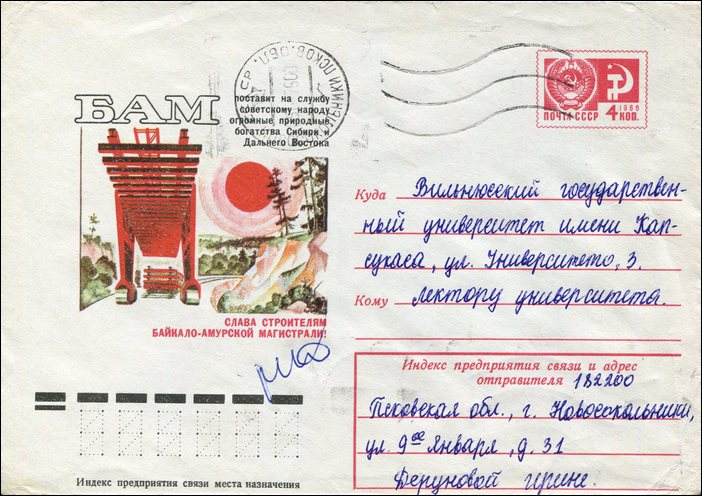 БАМ
поставит на службу
советскому народу
огромные природные
богатства Сибири и
Дальнего Востока
СЛАВА СТРОИТЕЛЯМ
БАЙКАЛО-АМУРСКОЙ МАГИСТРАЛИ!
ПСКОВ. ОБЛ.
ПОЧТА СССР
1966
4 КОП.
Куда Вильнюсский государствен-
ный университет имени Кап-
сукаса, ул. Университето, 3.
Кому лектору университета.
Индекс предприятия связи и адрес
отправителя 182200
Псковская обл., г. Новосокольники,
ул. 9ое Января, д. 31
Деруновой Ирине.
Индекс предприятия связи места назначения